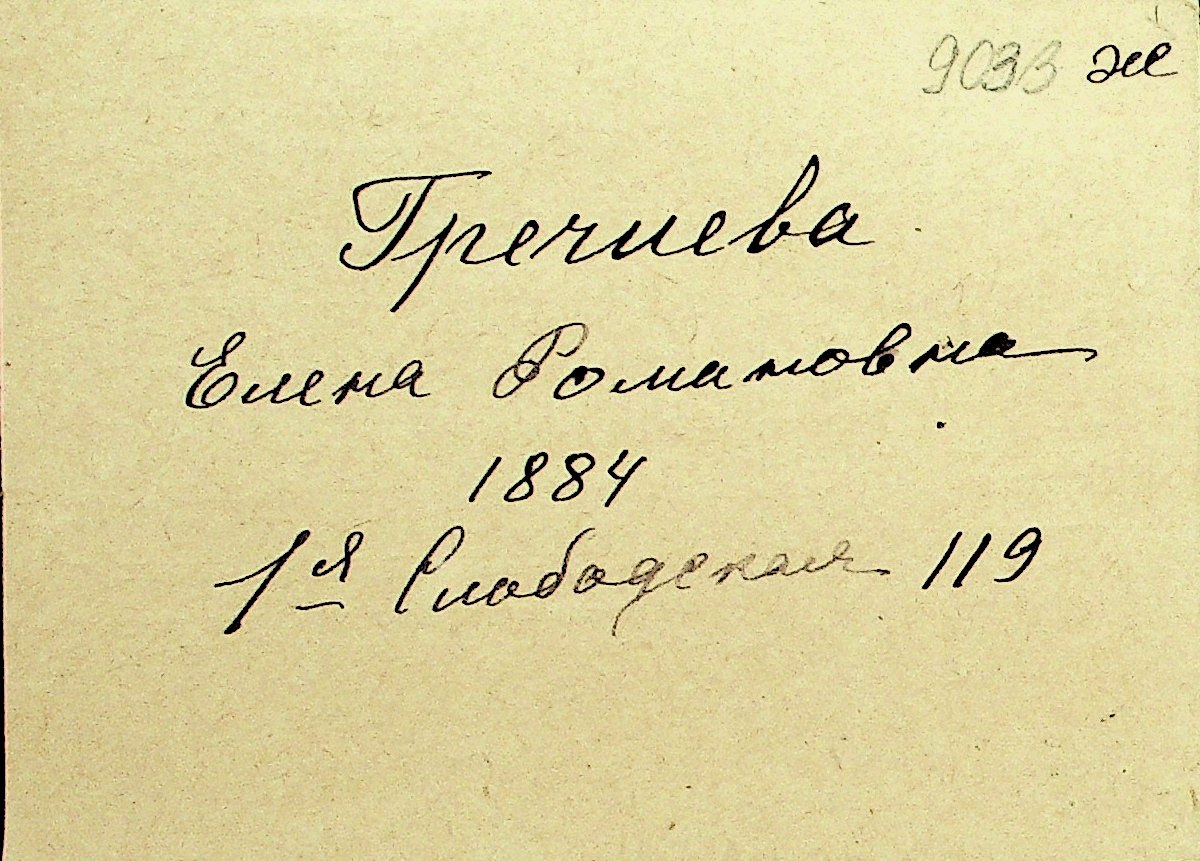 9033 ж
Гречиева
Елена Романовна
1884
1я Слободская 119